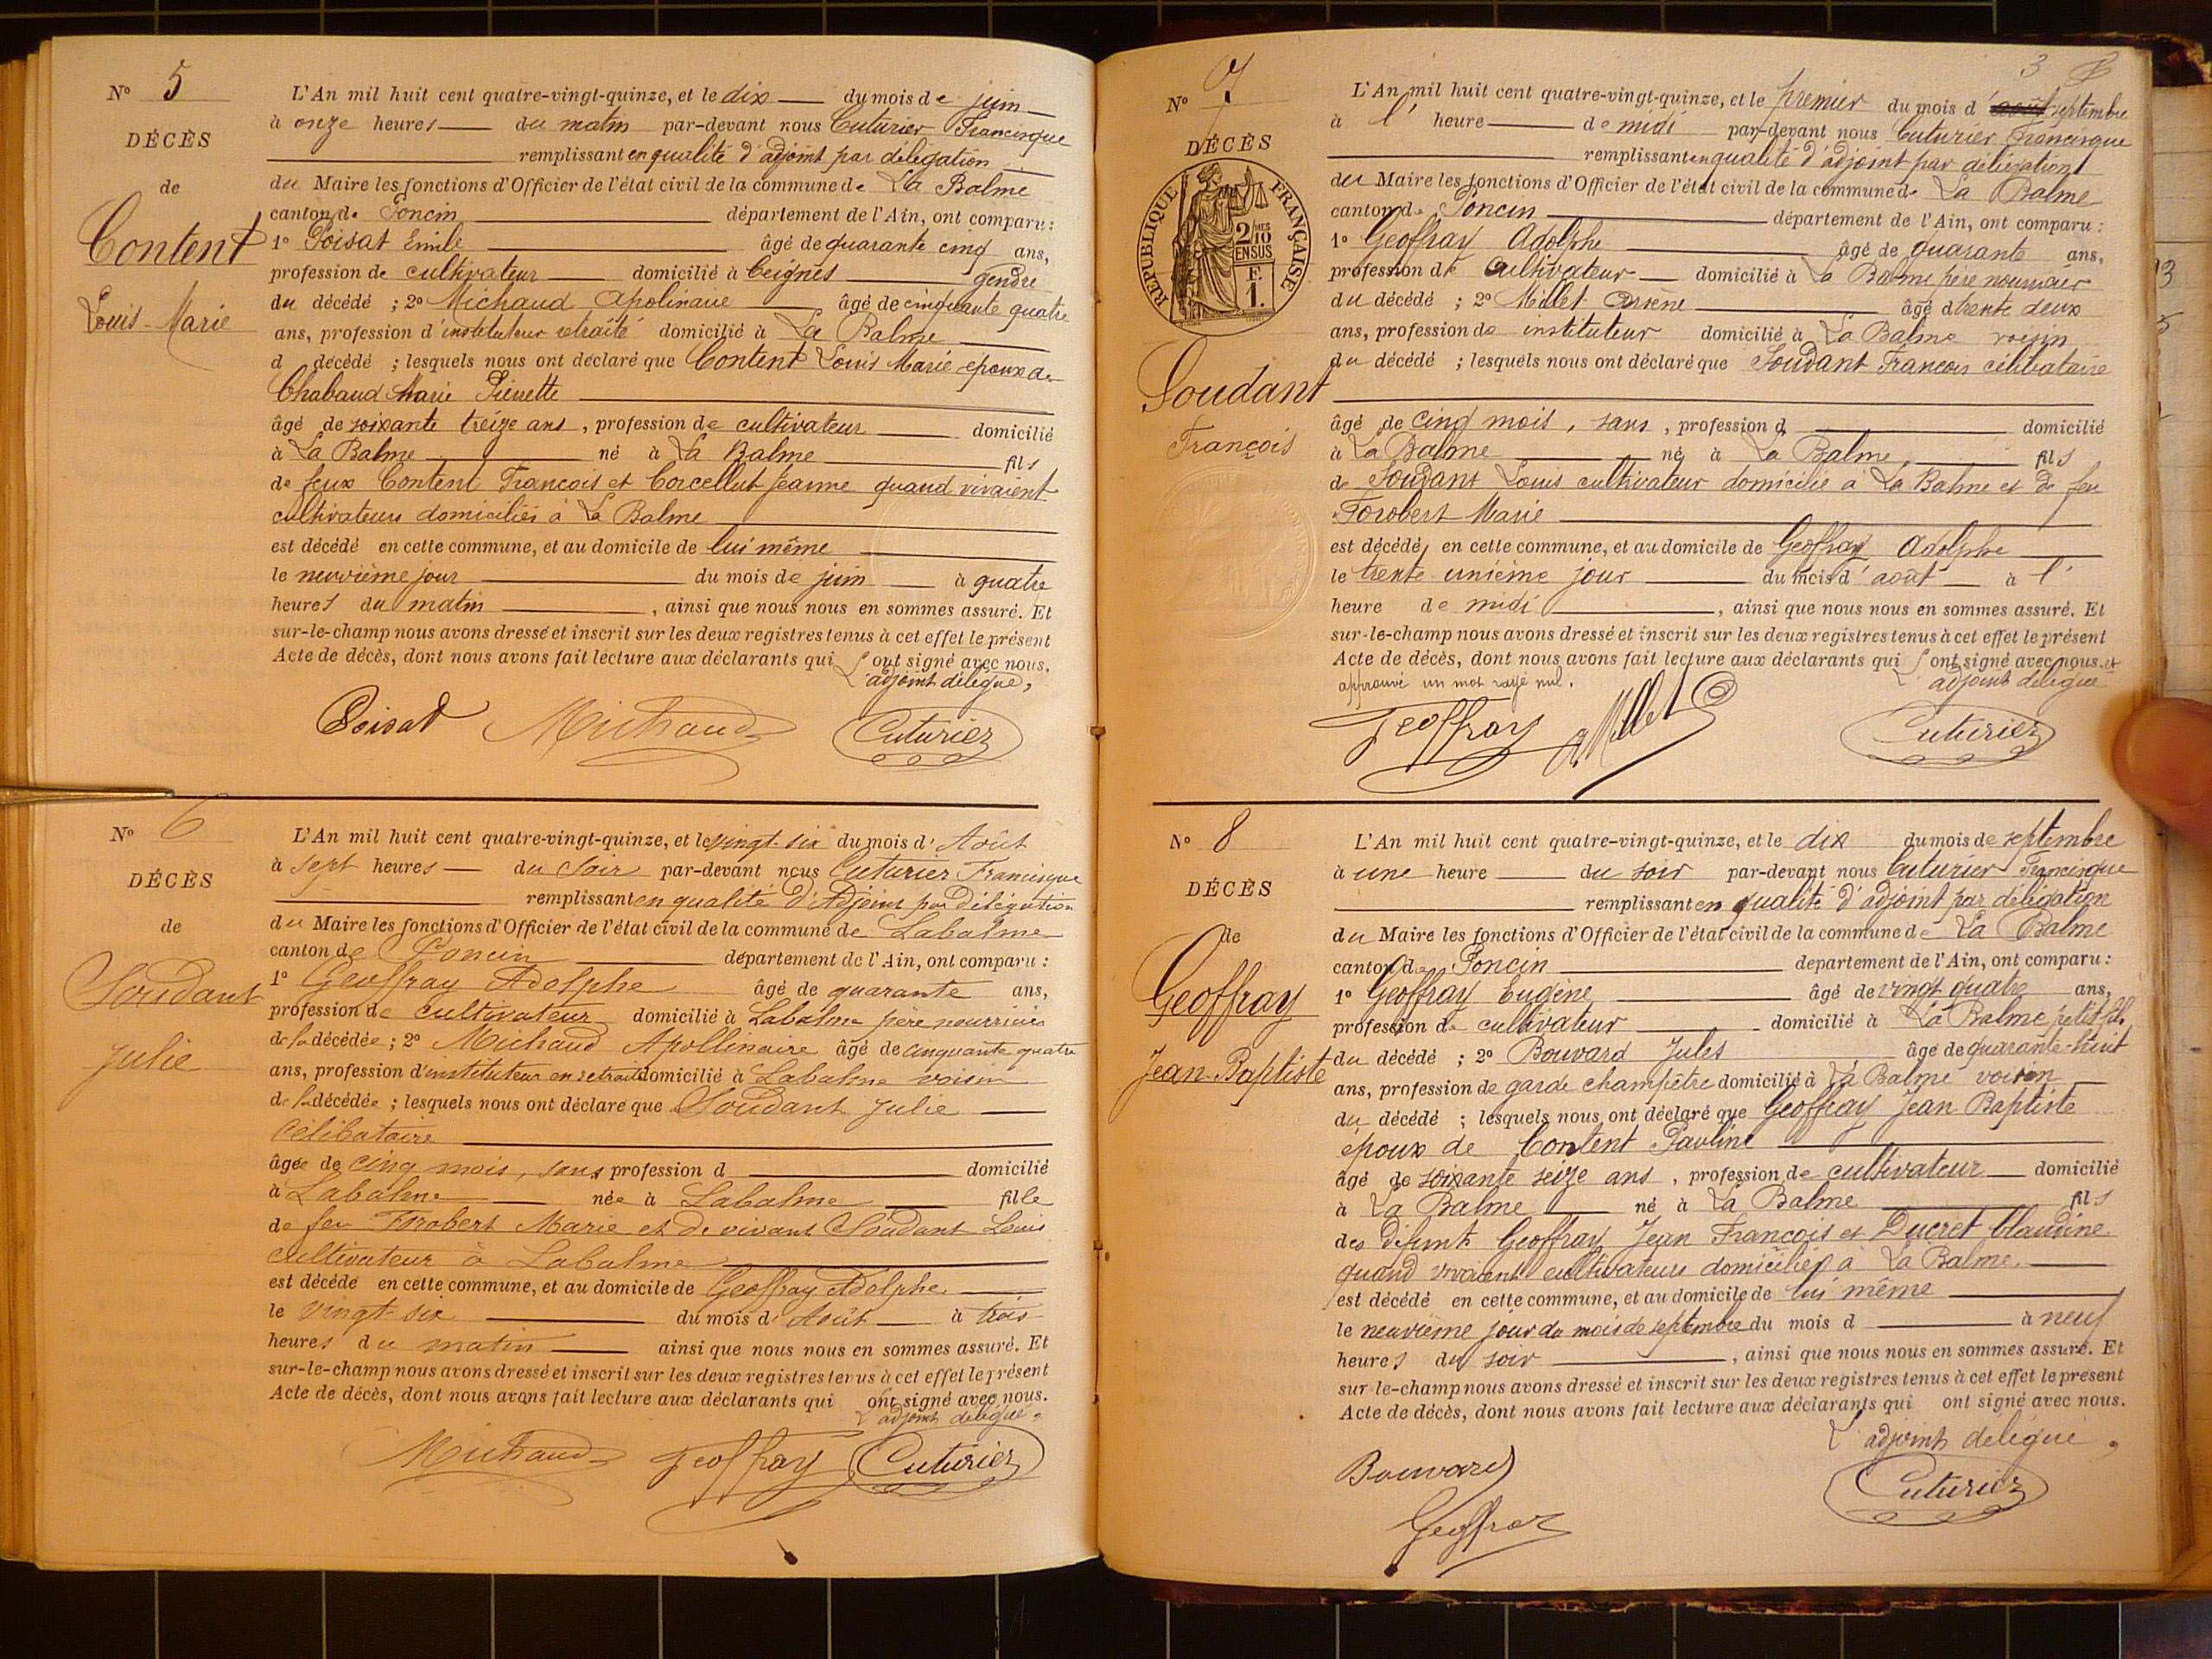 N° 5
DÉCÈS
de
Content
Louis-Marie
L'An mil huit cent quatre-vingt-quinze, et le dix du mois de juin
à onze heures du matin par-devant nous Cuturier Francisque
remplissant en qualité d'adjoint par délégation
du Maire les fonctions d'Officier de l'état civil de la commune de La Balme
canton de Poncin département de l'Ain, ont comparu :
1° Poisat Emile âgé de quarante cinq ans,
profession de cultivateur domicilié à Ceignes gendre
du décédé ; 2° Michaud Apolinaire âgé de cinquante quatre
ans, profession d'instituteur retraité domicilié à La Balme
d décédé ; lesquels nous ont déclaré que Content Louis Marie époux de
Chabaud Marie Pierrette
âgé de soixante treize ans, profession de cultivateur domicilié
à La Balme né à La Balme fils
de feux Content François et Corcellut Jeanne quand vivaient
cultivateurs domiciliés à La Balme
est décédé en cette commune, et au domicile de lui même
le neuvième jour du mois de juin à quatre
heures du matin, ainsi que nous nous en sommes assuré. Et
sur-le-champ nous avons dressé et inscrit sur les deux registres tenus à cet effet le présent
Acte de décès, dont nous avons fait lecture aux déclarants qui ont signé avec nous.
L'adjoint délégué,
Poisat Michaud Cuturier
N° 6
DÉCÈS
de
Soudant
Julie
L'An mil huit cent quatre-vingt-quinze, et le vingt-six du mois d'Août
à sept heures du soir par-devant nous Cuturier Francisque
remplissant en qualité d'Adjoint par Délégation
du Maire les fonctions d'Officier de l'état civil de la commune de Labalme
canton de Poncin département de l'Ain, ont comparu :
1° Geoffray Adolphe âgé de quarante ans,
profession de cultivateur domicilié à Labalme père nourricier
de la décédée ; 2° Michaud Apollinaire âgé de cinquante quatre
ans, profession d'instituteur en retraite domicilié à Labalme voisin
de la décédée ; lesquels nous ont déclaré que Soudant Julie
Célibataire
âgée de cinq mois, sans profession d domicilié
à Labalme née à Labalme fille
de feu Forobert Marie et de vivant Soudant Louis
cultivateur à Labalme
est décédé en cette commune, et au domicile de Geoffray Adolphe
le vingt-six du mois d'Août à trois
heures du matin ainsi que nous nous en sommes assuré. Et
sur-le-champ nous avons dressé et inscrit sur les deux registres tenus à cet effet le présent
Acte de décès, dont nous avons fait lecture aux déclarants qui ont signé avec nous.
L'adjoint délégué.
Michaud Geoffray Cuturier
3
N° 7
DÉCÈS
RÉPUBLIQUE FRANÇAISE
2/10
EN SUS
F.
1.
Soudant
François
L'An mil huit cent quatre-vingt-quinze, et le premier du mois d' août septembre
à l' heure de midi par-devant nous Cuturier Francisque
remplissant en qualité d'adjoint par délégation
du Maire les fonctions d'Officier de l'état civil de la commune de La Balme
canton de Poncin département de l'Ain, ont comparu :
1° Geoffray Adolphe âgé de quarante ans,
profession de cultivateur domicilié à La Balme père nourricier
du décédé ; 2° Millet Arsène âgé de trente deux
ans, profession de instituteur domicilié à La Balme voisin
du décédé ; lesquels nous ont déclaré que Soudant François célibataire
âgé de cinq mois, sans, profession d domicilié
à La Balme né à La Balme fils
de Soudant Louis cultivateur domicilié à La Balme et de feu
Forobert Marie
est décédé en cette commune, et au domicile de Geoffray Adolphe
le trente unième jour du mois d'août à l'
heure de midi, ainsi que nous nous en sommes assuré. Et
sur-le-champ nous avons dressé et inscrit sur les deux registres tenus à cet effet le présent
Acte de décès, dont nous avons fait lecture aux déclarants qui ont signé avec nous. et
approuvé un mot rayé nul. L'adjoint délégué
Geoffray A. Millet Cuturier
N° 8
DÉCÈS
de
Geoffray
Jean-Baptiste
L'An mil huit cent quatre-vingt-quinze, et le dix du mois de septembre
à une heure du soir par-devant nous Cuturier Francisque
remplissant en qualité d'adjoint par délégation
du Maire les fonctions d'Officier de l'état civil de la commune de La Balme
canton de Poncin département de l'Ain, ont comparu :
1° Geoffray Eugène âgé de vingt quatre ans,
profession de cultivateur domicilié à La Balme petit-fils
du décédé ; 2° Bouvard Jules âgé de quarante-huit
ans, profession de garde champêtre domicilié à La Balme voisin
du décédé ; lesquels nous ont déclaré que Geoffray Jean Baptiste
époux de Content Pauline
âgé de soixante seize ans, profession de cultivateur domicilié
à La Balme né à La Balme fils
des défunts Geoffray Jean François et Ducret Claudine
quand vivaient cultivateurs domiciliés à La Balme.
est décédé en cette commune, et au domicile de lui même
le neuvième jour du mois de septembre du mois d à neuf
heures du soir, ainsi que nous nous en sommes assuré. Et
sur-le-champ nous avons dressé et inscrit sur les deux registres tenus à cet effet le présent
Acte de décès, dont nous avons fait lecture aux déclarants qui ont signé avec nous.
L'adjoint délégué,
Bouvard Cuturier
Geoffray